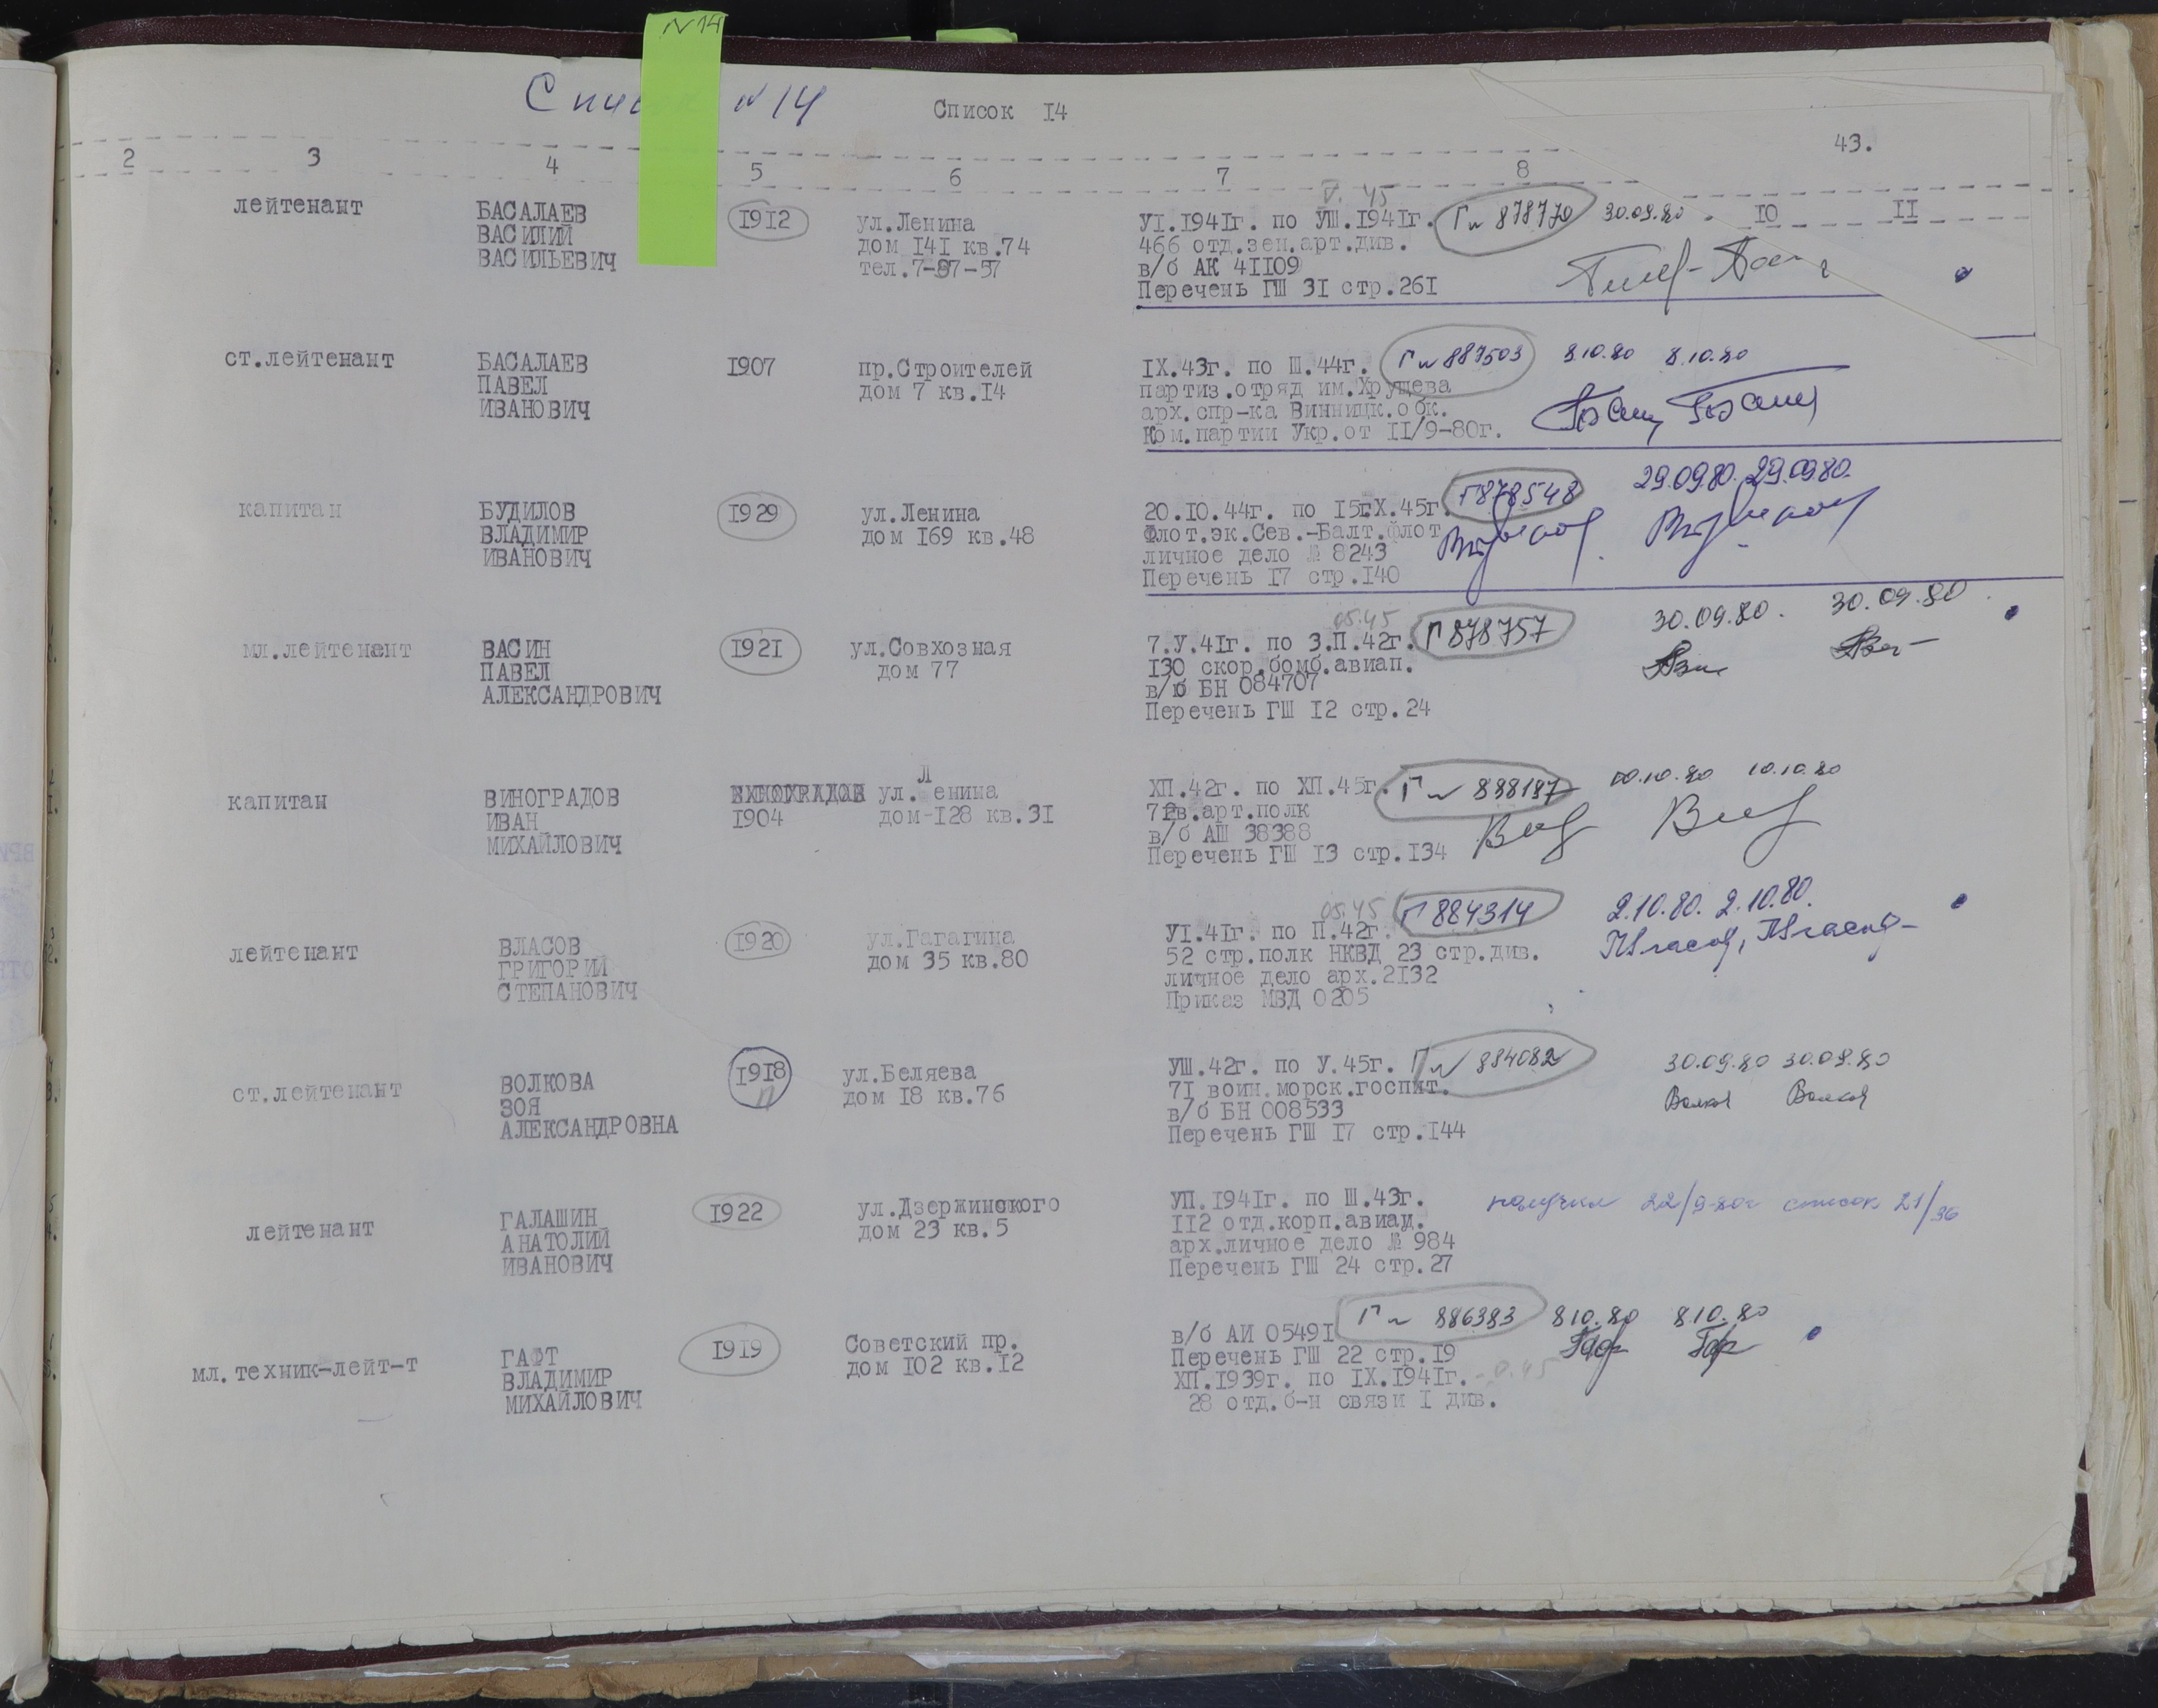 N14
Список N14
Список I4
43.
2 3 4 5 6 7 8 IO II
лейтенант
БАСАЛАЕВ
ВАСИЛИЙ
ВАСИЛЬЕВИЧ
I9I2
ул.Ленина
дом I4I кв.74
тел.7-87-57
V. 45
УI.I94Iг. по УШ.I94Iг. Г № 878770 30.09.80
466 отд.зен.арт.див.
в/б АК 4II09
Перечень ГШ 3I стр.26I
ст.лейтенант
БАСАЛАЕВ
ПАВЕЛ
ИВАНОВИЧ
I907
пр.Строителей
дом 7 кв.I4
IX.43г. по Ш.44г. Г № 887503 8.10.80 8.10.80
партиз.отряд им.Хрущева
арх.спр-ка Винницк.обк.
Ком.партии Укр.от II/9-80г.
капитан
БУДИЛОВ
ВЛАДИМИР
ИВАНОВИЧ
I929
ул.Ленина
дом I69 кв.48
20.I0.44г. по I5.IX.45г. Г878548 29.09.80. 29.09.80.
Флот.эк.Сев.-Балт.флот
личное дело № 8243
Перечень I7 стр.I40
мл.лейтенант
ВАСИН
ПАВЕЛ
АЛЕКСАНДРОВИЧ
I92I
ул.Совхозная
дом 77
05.45
7.У.4Iг. по 3.П.42г. Г 878757 30.09.80. 30.09.80
I30 скор.бомб.авиап.
в/б БН 084707
Перечень ГШ I2 стр.24
капитан
ВИНОГРАДОВ
ИВАН
МИХАЙЛОВИЧ
I904
ул.Ленина
дом-I28 кв.3I
ХП.42г. по ХП.45г. Г № 888187 10.10.80 10.10.80
72гв.арт.полк
в/б АШ 38388
Перечень ГШ I3 стр.I34
лейтенант
ВЛАСОВ
ГРИГОРИЙ
СТЕПАНОВИЧ
I920
ул.Гагагина
дом 35 кв.80
05.45
УI.4Iг. по П.42г. Г 884314 2.10.80. 2.10.80.
52 стр.полк НКВД 23 стр.див.
личное дело арх.2I32
Приказ МВД 0205
ст.лейтенант
ВОЛКОВА
ЗОЯ
АЛЕКСАНДРОВНА
I9I8
ул.Беляева
дом I8 кв.76
УШ.42г. по У.45г. Г № 884082 30.09.80 30.09.80
7I воин.морск.госпит.
в/б БН 008533
Перечень ГШ I7 стр.I44
лейтенант
ГАЛАШИН
АНАТОЛИЙ
ИВАНОВИЧ
I922
ул.Дзержинского
дом 23 кв.5
УП.I94Iг. по Ш.43г. получил 22/9-80г список 21/36
II2 отд.корп.авиац.
арх.личное дело № 984
Перечень ГШ 24 стр.27
мл.техник-лейт-т
ГАФТ
ВЛАДИМИР
МИХАЙЛОВИЧ
I9I9
Советский пр.
дом I02 кв.I2
в/б АИ 0549I Г № 886383 8.10.80 8.10.80
Перечень ГШ 22 стр.I9
ХП.I939г. по IX.I94Iг.
28 отд.б-н связи I див.